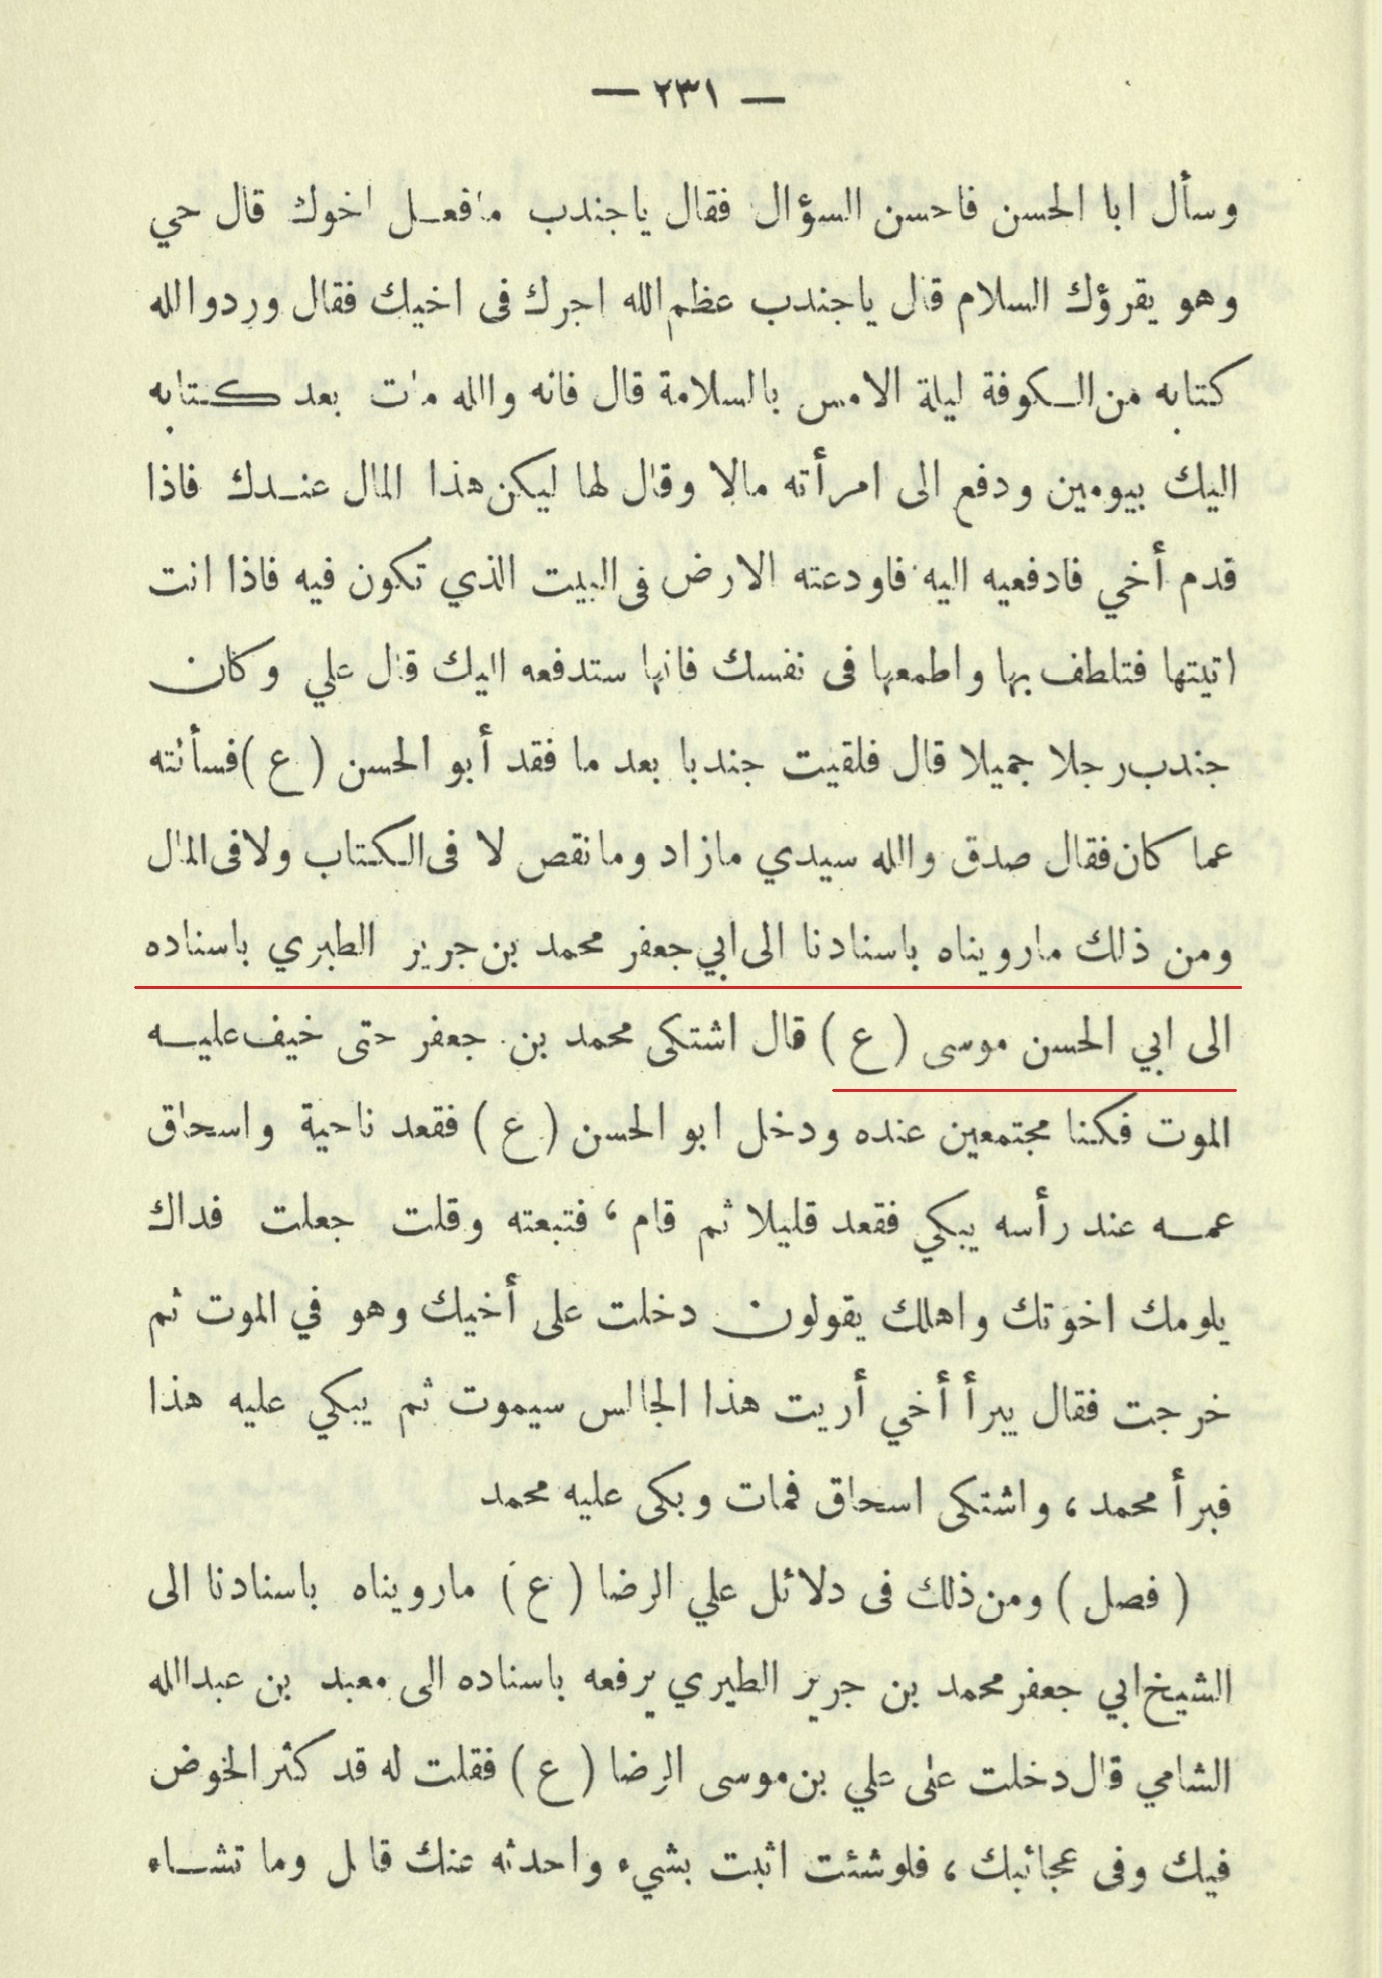 — ٢٣١ —
وسأل ابا الحسن فاحسن السؤال فقال ياجندب مافعل اخوك قال حي
وهو يقرؤك السلام قال ياجندب عظم الله اجرك فى اخيك فقال وردو الله
كتابه من الكوفة ليلة الامس بالسلامة قال فانه والله مات بعد كتابه
اليك بيومين ودفع الى امرأته مالا وقال لها ليكن هذا المال عندك فاذا
قدم أخي فادفعيه اليه فاودعته الارض فى البيت الذي تكون فيه فاذا انت
اتيتها فتلطف بها واطمعها فى نفسك فانها ستدفعه اليك قال علي وكان
جندب رجلا جميلا قال فلقيت جندبا بعد ما فقد أبو الحسن (ع) فسألته
عما كان فقال صدق والله سيدي مازاد وما نقص لا فى الكتاب ولا فى المال
ومن ذلك مارويناه باسنادنا الى ابي جعفر محمد بن جرير الطبري باسناده
الى ابي الحسن موسى (ع) قال اشتكى محمد بن جعفر حتى خيف عليه
الموت فكنا مجتمعين عنده ودخل ابو الحسن (ع) فقعد ناحية واسحاق
عمه عند رأسه يبكي فقعد قليلا ثم قام ، فتبعته وقلت جعلت فداك
يلومك اخوتك واهلك يقولون دخلت على أخيك وهو في الموت ثم
خرجت فقال يبرأ أخي أريت هذا الجالس سيموت ثم يبكي عليه هذا
فبرأ محمد ، واشتكى اسحاق فمات وبكى عليه محمد
( فصل ) ومن ذلك فى دلائل علي الرضا (ع) مارويناه باسنادنا الى
الشيخ ابي جعفر محمد بن جرير الطيري يرفعه باسناده الى معبد بن عبد الله
الشامي قال دخلت على علي بن موسى الرضا (ع) فقلت له قد كثر الخوض
فيك وفى عجائبك ، فلو شئت اثبت بشيء واحدثه عنك قال وما تشاء